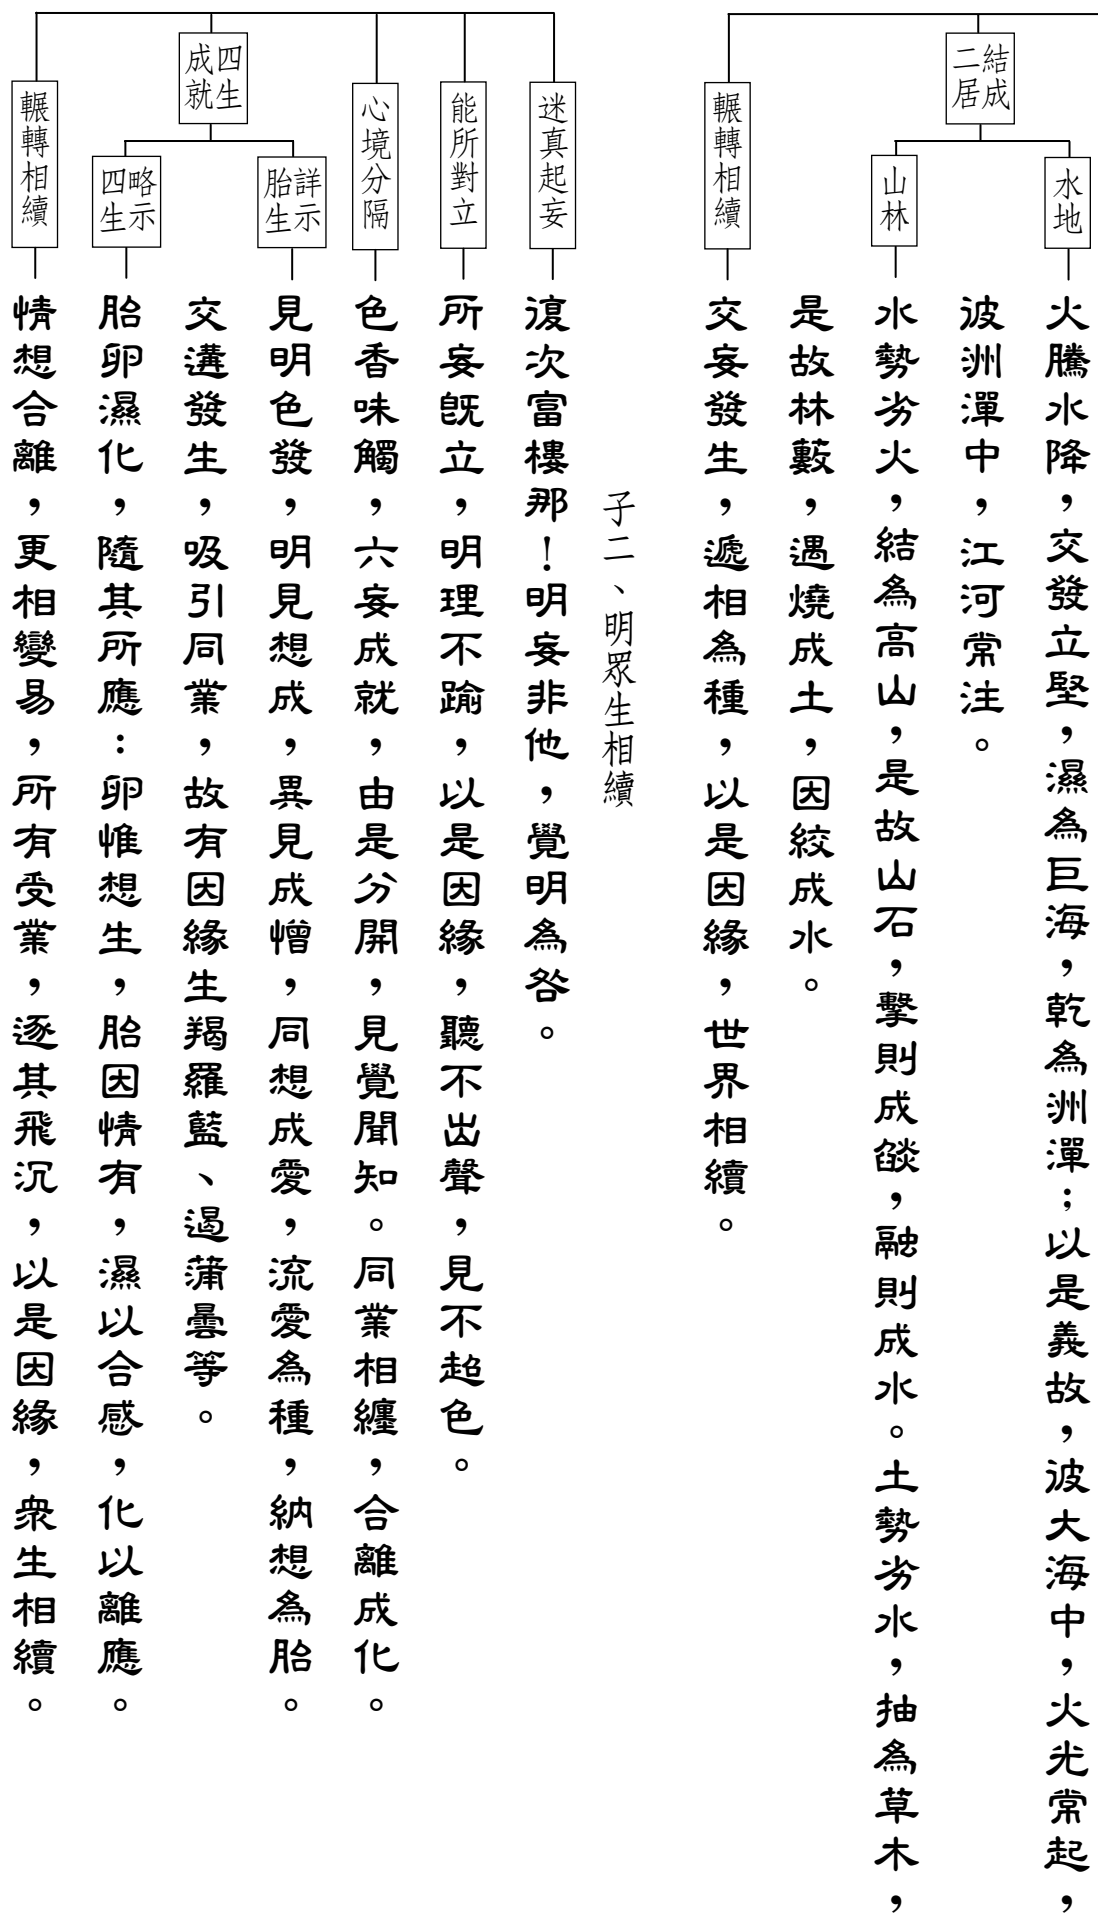 結成二居
水地
火騰水降，交發立堅，濕為巨海，乾為洲潬；以是義故，波大海中，火光常起，
波洲潬中，江河常注。
山林
水勢劣火，結為高山，是故山石，擊則成燄，融則成水。土勢劣水，抽為草木，
是故林藪，遇燒成土，因絞成水。
輾轉相續
交妄發生，遞相為種，以是因緣，世界相續。
子二、明眾生相續
迷真起妄
復次富樓那！明妄非他，覺明為咎。
能所對立
所妄既立，明理不踰，以是因緣，聽不出聲，見不超色。
心境分隔
色香味觸，六妄成就，由是分開，見覺聞知。同業相纏，合離成化。
四生成就
詳示胎生
見明色發，明見想成，異見成憎，同想成愛，流愛為種，納想為胎。
交遘發生，吸引同業，故有因緣生羯羅藍、遏蒲曇等。
略示四生
胎卵濕化，隨其所應：卵惟想生，胎因情有，濕以合感，化以離應。
輾轉相續
情想合離，更相變易，所有受業，逐其飛沉，以是因緣，眾生相續。